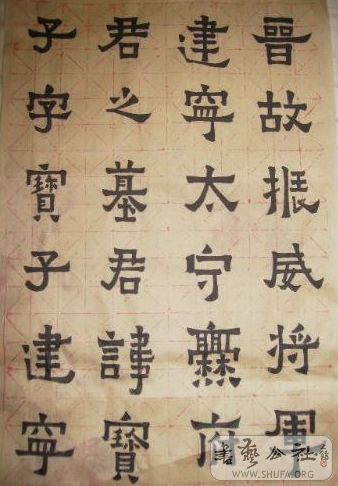 晉故振威將軍
建寧太守爨府
君之墓君諱寶
子字寶子建寧
書藝公社
WWW.SHUFA.ORG